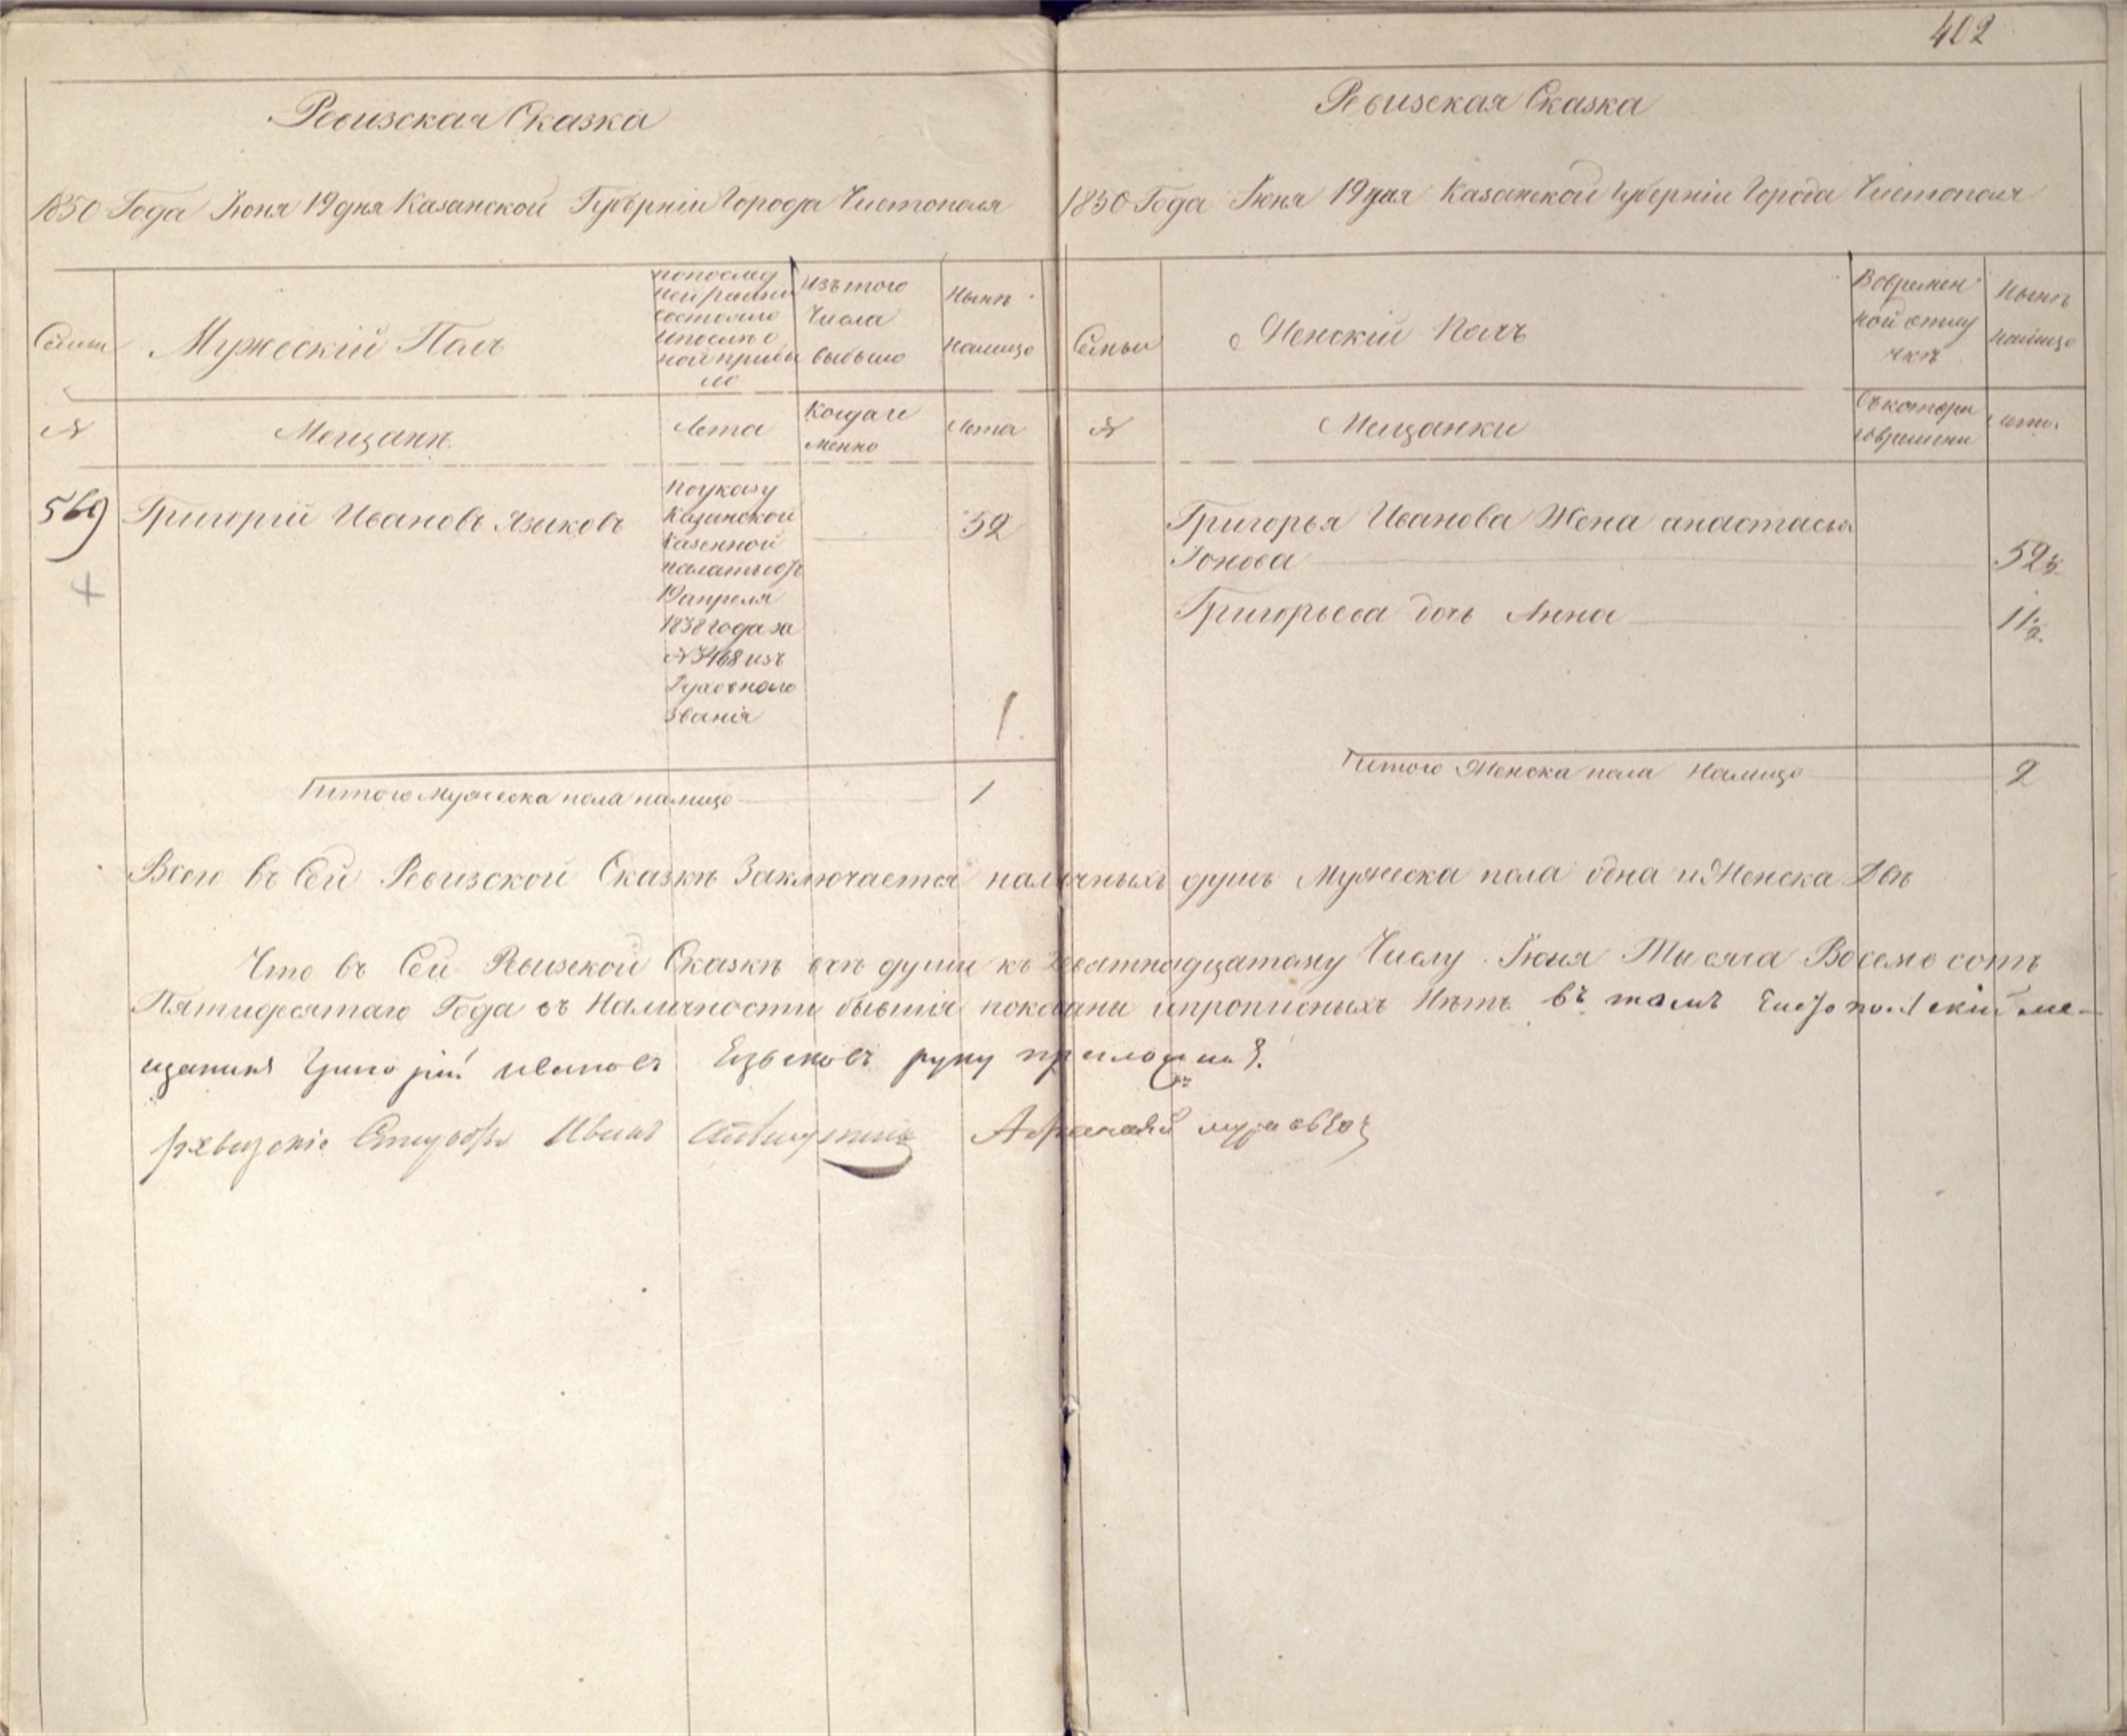 402
Ревизская Сказка
1850 Года Іюня 19 дня Казанской Губерніи Города Чистополя
Семьи
Мужескій Полъ
по послед
ней ревизіи
состояло
и после о
ной прибы
ло
Изъ того
Числа
выбыло
Нынѣ
налицо
№
Мещанѣ
Лета
Когда и
менно
Лета
569
Григорій Ивановъ Языковъ
По указу
Казанской
Казенной
палаты отъ
19 апреля
1838 года за
№ 3468 изъ
Духовного
Званія
52
1
Итого Мужеска пола налицо
1
Ревизская Сказка
1850 Года Іюня 19 дня Казанской Губерніи Города Чистополя
Семьи
Женскій Полъ
Во времен
ной отлу
чкѣ
Нынѣ
налицо
№
Мещанки
Съ котора
го времени
Лета
Григорья Иванова Жена анастасья
Іонова
52
Григорьева дочь Анна
11
Итого Женска пола Налицо
2
Всего въ Сей Ревизской Сказкѣ Заключается наличныхъ душъ Мужеска пола одна и Женска Двѣ
Что въ Сей Ревизской Сказкѣ всѣ души къ Девятнадцатому Числу Іюня Тысяча Восемь сотъ
Пятидесятаго Года въ Наличности бывшія показаны и прописныхъ Нѣтъ въ томъ Чистопольскій ме-
щанинъ Григорій ивановъ Езыковъ руку приложилъ
Иванъ